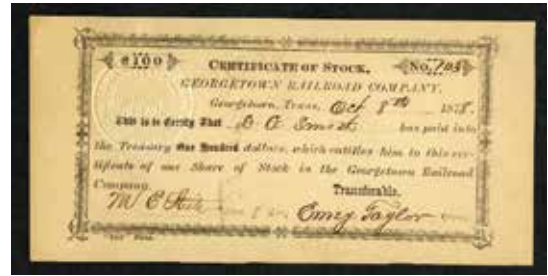 $100 CERTIFICATE OF STOCK, No. 703
GEORGETOWN RAILROAD COMPANY.
Georgetown, Texas, Oct 8th 1878.
This is to Certify That D. A. has paid into
the Treasury One Hundred dollars, which entitles him to this cer-
tificate of one Share of Stock in the Georgetown Railroad
Company. Transferable.
M E Emzy Taylor